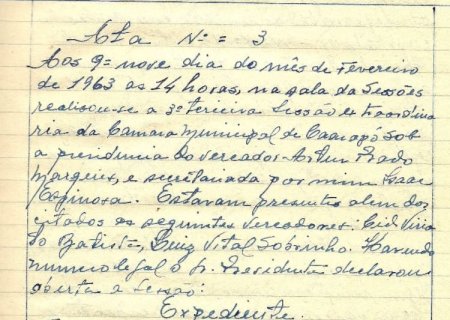 Ata Nº = 3
Aos 9= nove dia do mês de Fevereiro
de 1963 as 14 horas, na sala da Sessões
realisou-se a 3º terceira Sessão extraordina
ria da Camara Municipal de Caarapó sob
a presidencia do vereador Artur Prado
Marques, e secretariada por mim Isaac
Espinosa. Estavam presentes alem dos
citados os seguintes vereadores: Cid Viria
to Batista, Luiz Vital Sobrinho. Havendo
numero legal o sr. Presidente declarou
aberta a Sessão:
Expediente: